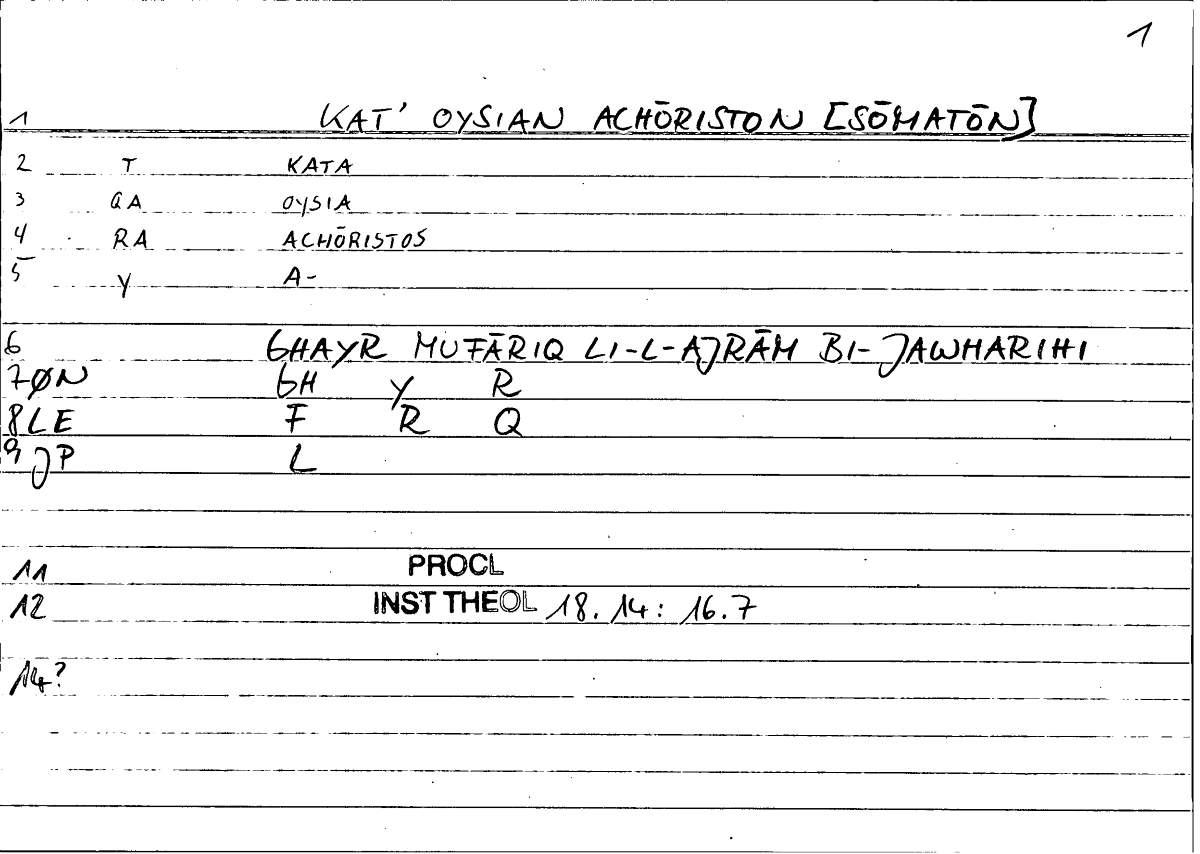 1
1 KAT' OYSIAN ACHŌRISTON [SŌMATŌN]
2 T KATA
3 GA OYSIA
4 RA ACHŌRISTOS
5 Y A-
6 GHAYR MUFĀRIQ LI-L-AJRĀM BI-JAWHARIHI
7 ØN GH Y R
8 LE F R Q
9 JP L
11 PROCL
12 INST THEOL 18. 14: 16.7
14?